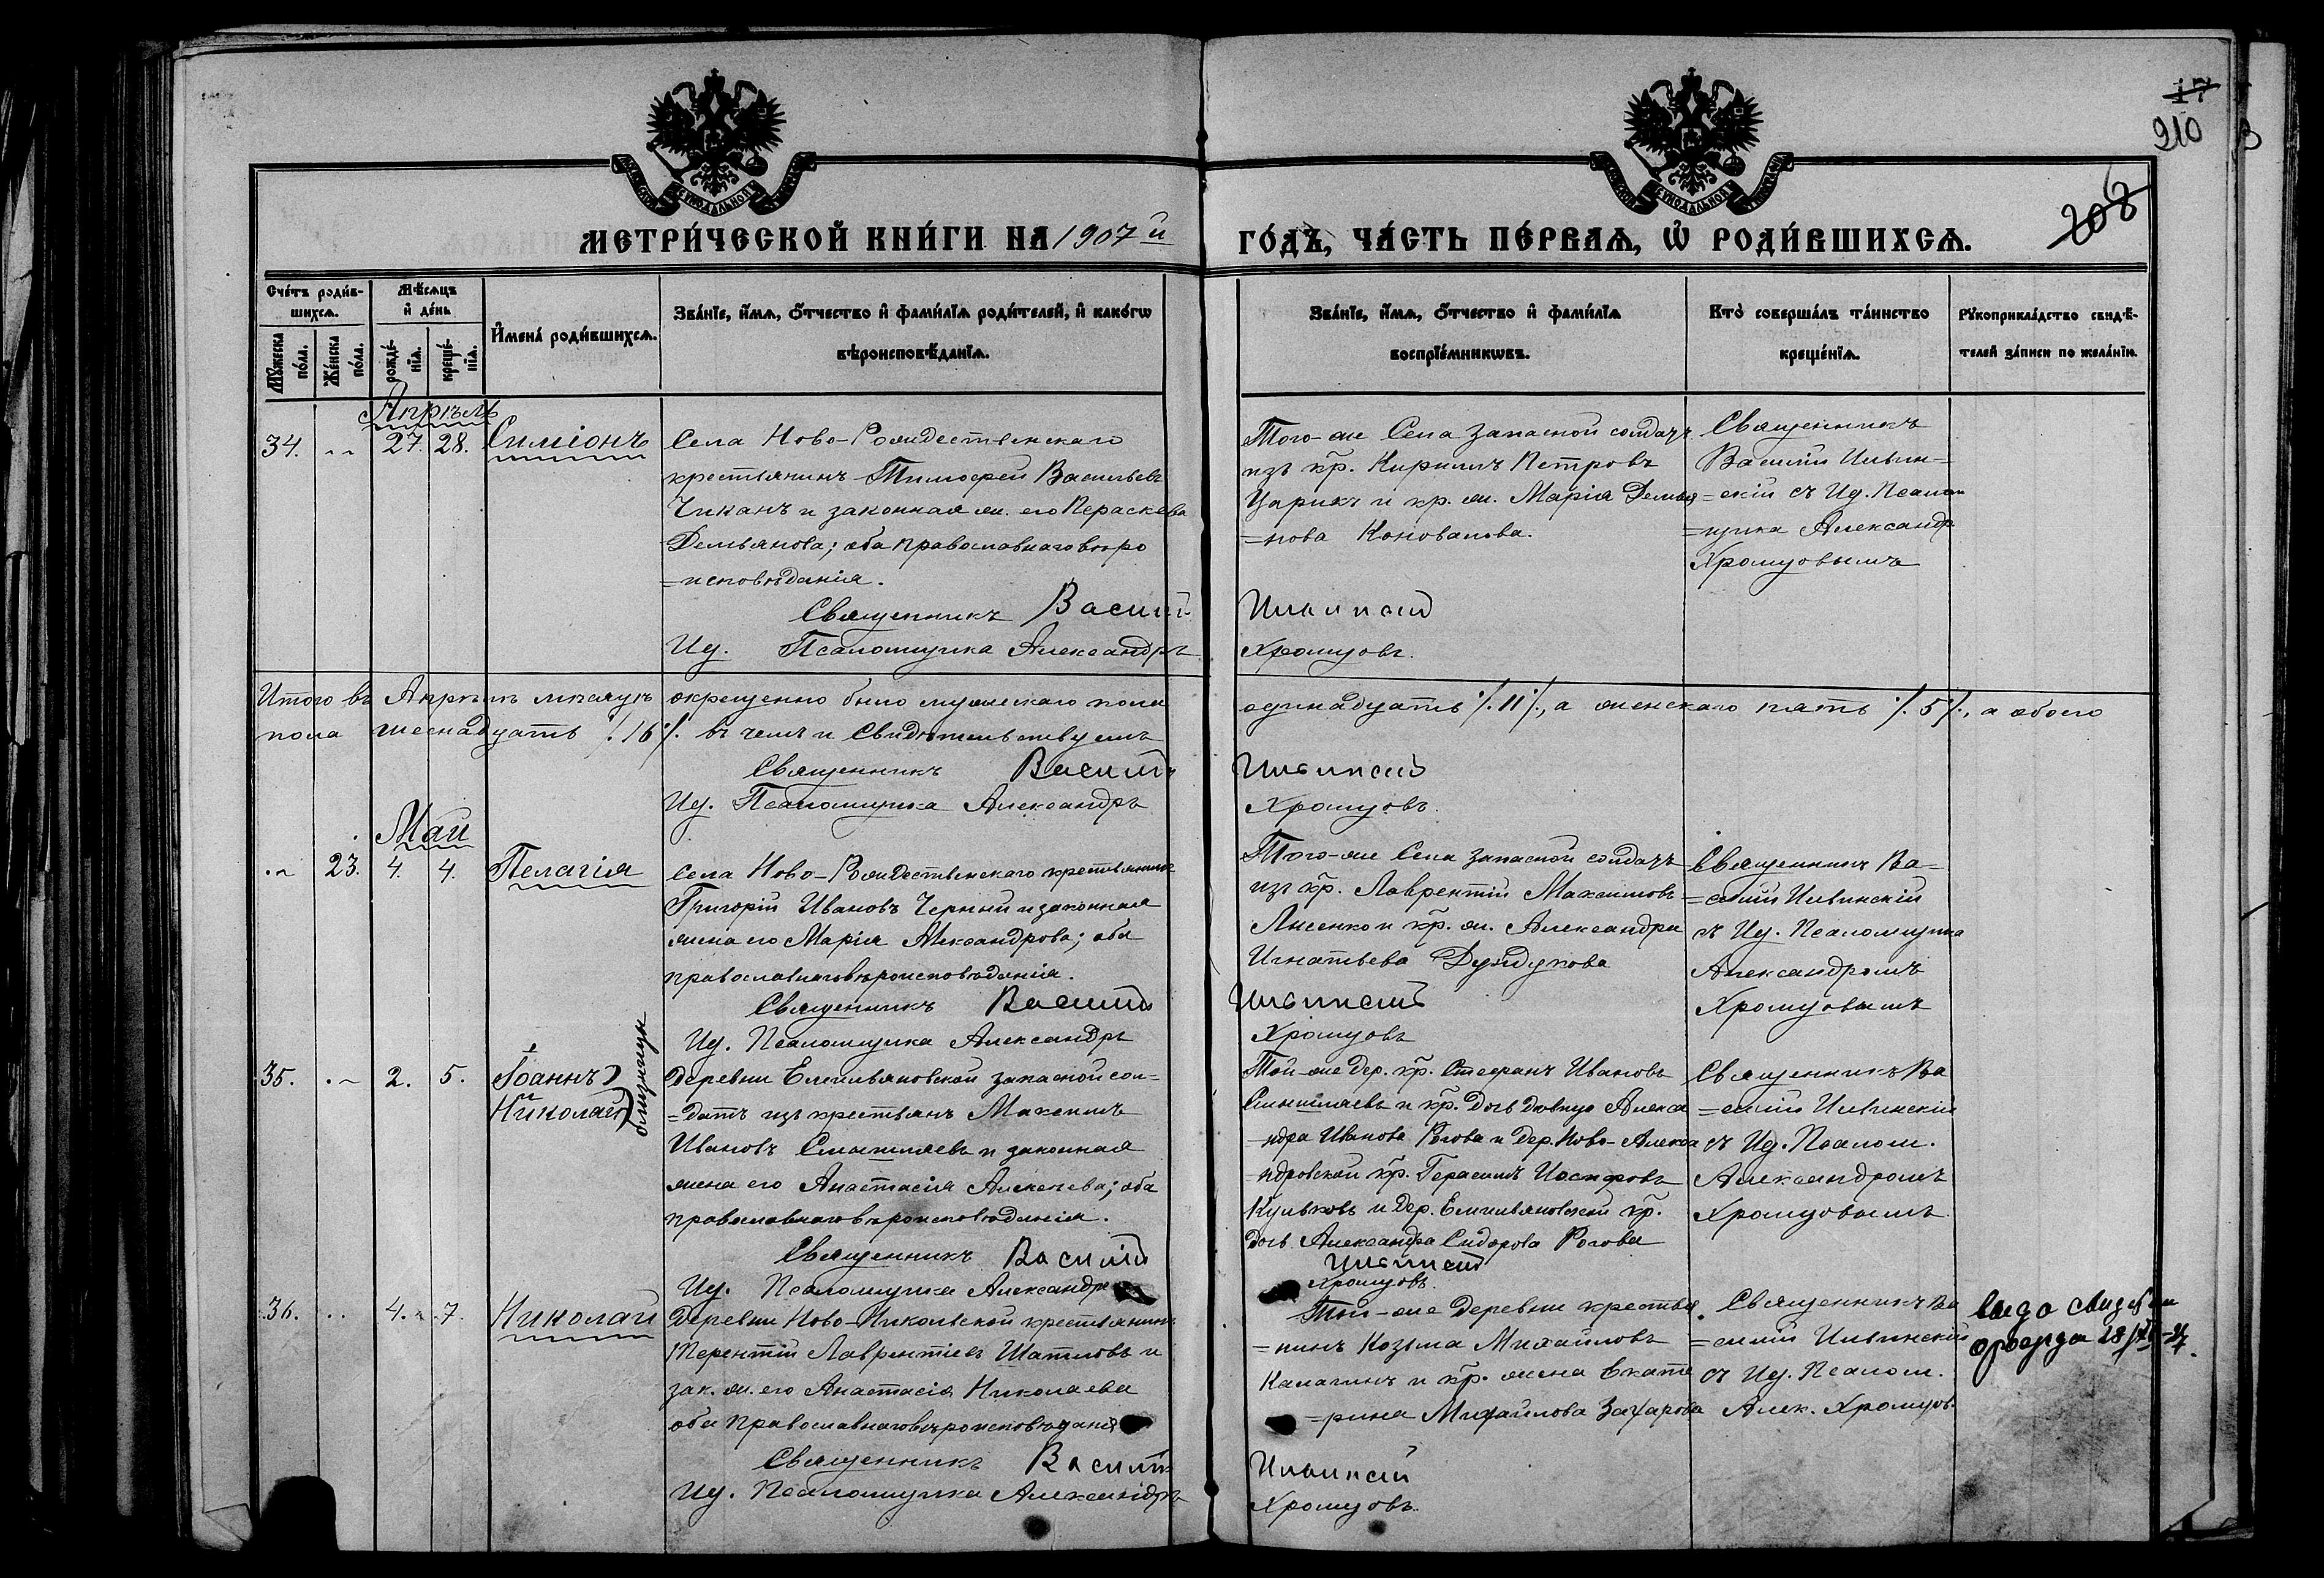 17
210
208
МЕТРИ́ЧЕСКОЙ КНИ́ГИ НА 1907 й
ГО́ДЪ, ЧА́СТЬ ПЕ́РВАѦ, Ѡ҆ РОДИ́ВШИХСѦ.
Сче́тъ роди́в-
шихсѧ.
Мѣ́сѧцъ
и҆ де́нь
Мꙋ́жеска по́ла.
Же́нска по́ла.
рожде́-нїѧ.
креще́-нїѧ.
И҆мена̀ роди́вшихсѧ.
Зва́нїе, и҆́мѧ, о҆́тчество и҆ фами́лїѧ роди́телей, и҆ како́гѡ
вѣроисповѣ́данїѧ.
Зва́нїе, и҆́мѧ, о҆́тчество и҆ фами́лїѧ
воспрїе́мникѡвъ.
Кто̀ соверша́лъ та́инство
креще́нїѧ.
Рꙋкоприкла́дство свидѣ́-
телей за́писи по жела́нїю.
Апрѣль
34. 27. 28. Симіонъ
Села Ново-Рождественскаго
крестьянинъ Тимофей Васильевъ
Чиканъ и законная ж. его Параскева
Демьянова; оба православнаго вѣро
=исповѣданія.
Священникъ Василій
Ид. Псаломщика Александръ
Того-же Села запасной солдатъ
изъ кр. Кириллъ Петровъ
Царикъ и кр. ж. Марія Демья
=нова Коновалова.
Ильинскій
Хромцовъ.
Священникъ
Василій Ильин=
=скій съ Ид. Псалом
=щика Александр
Хромцовымъ
Итого въ Апрѣлѣ мѣсяцѣ окрещенно было мужескаго пола одинадцать /.11/., а женскаго пять /.5/., а обоего
пола шеснадцать /.16/. въ чемъ и Свидѣтельствуемъ
Священникъ Василій Ильинскій
Ид. Псаломщика Александръ Хромцовъ.
Май
23. 4. 4. Пелагія
Села Ново-Рождественскаго крестьянинъ
Григорій Ивановъ Черный и законная
жена его Марія Александрова; оба
православнаго вѣроисповѣданія.
Священникъ Василій
Ид. Псаломщика Александръ
Того-же Села запасной солдатъ
изъ кр. Лаврентій Максимовъ
Лисенко и кр. ж. Александра
Игнатьева Дундукова
Ильинскій
Хромцовъ
Священникъ Ва=
=силій Ильинскій
съ Ид. Псаломщика
Александромъ
Хромцовымъ
35. 2. 5. Іоаннъ
Николай
близнецы
Деревни Емельяновской запасной сол=
=датъ изъ крестьянъ Максимъ
Ивановъ Смышляевъ и законная
жена его Анастасія Алексеева; оба
православнаго вѣроисповѣданія.
Священникъ Василій
Ид. Псаломщика Александръ
Той-же дер. кр. Стефанъ Ивановъ
Смышляевъ и кр. дочь дѣвица Алекса
=ндра Иванова Рогова и дер. Ново-Алекса
=ндровской кр. Герасимъ Иосифовъ
Кульковъ и дер. Емельяновской кр.
дочь Александра Сидорова Рогова
Ильинскій
Хромцовъ.
Священникъ Ва
=силій Ильинскій
съ Ид. Псалом.
Александромъ
Хромцовымъ.
36. 4. 7. Николай
Деревни Ново-Никольской крестьянинъ
Терентій Лаврентіевъ Шатиловъ и
зак. ж. его Анастасія Николаева
оба православнаго вѣроисповѣданія
Священникъ Василій
Ид. Псаломщика Александръ
Той-же деревни крестья
=нинъ Козьма Михайловъ
Калагинъ и кр. жена Екате
=рина Михайлова Захарова
Ильинскій
Хромцовъ.
Священникъ Ва
=силій Ильинскій
съ Ид. Псалом.
Алек. Хромцов.